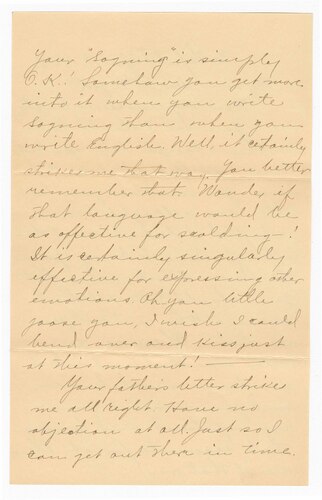 Your "Sogning" is simply
O.K.! Somehow you get more
into it when you write
sogning than when you
write English. Well, it certainly
strikes me that way. You better
remember that. Wonder if
that language would be
as effective for scolding-!
It is certainly singularly
effective for expressing other
emotions. Oh you little
goose you, I wish I could
bend over and kiss just
at this moment! —
Your fathers letter strikes
me all right. Have no
objection at all. Just so I
can get out there in time.